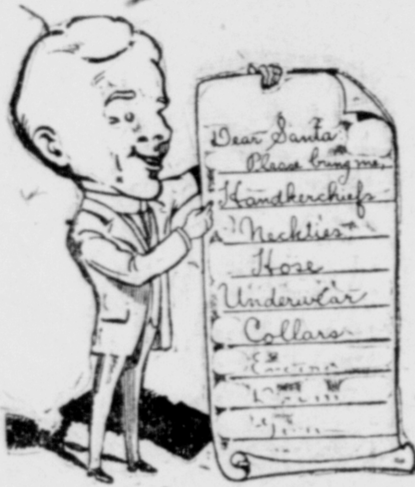 Dear Santa
Please bring me,
Handkerchiefs
Neckties
Hose
Underwear
Collars